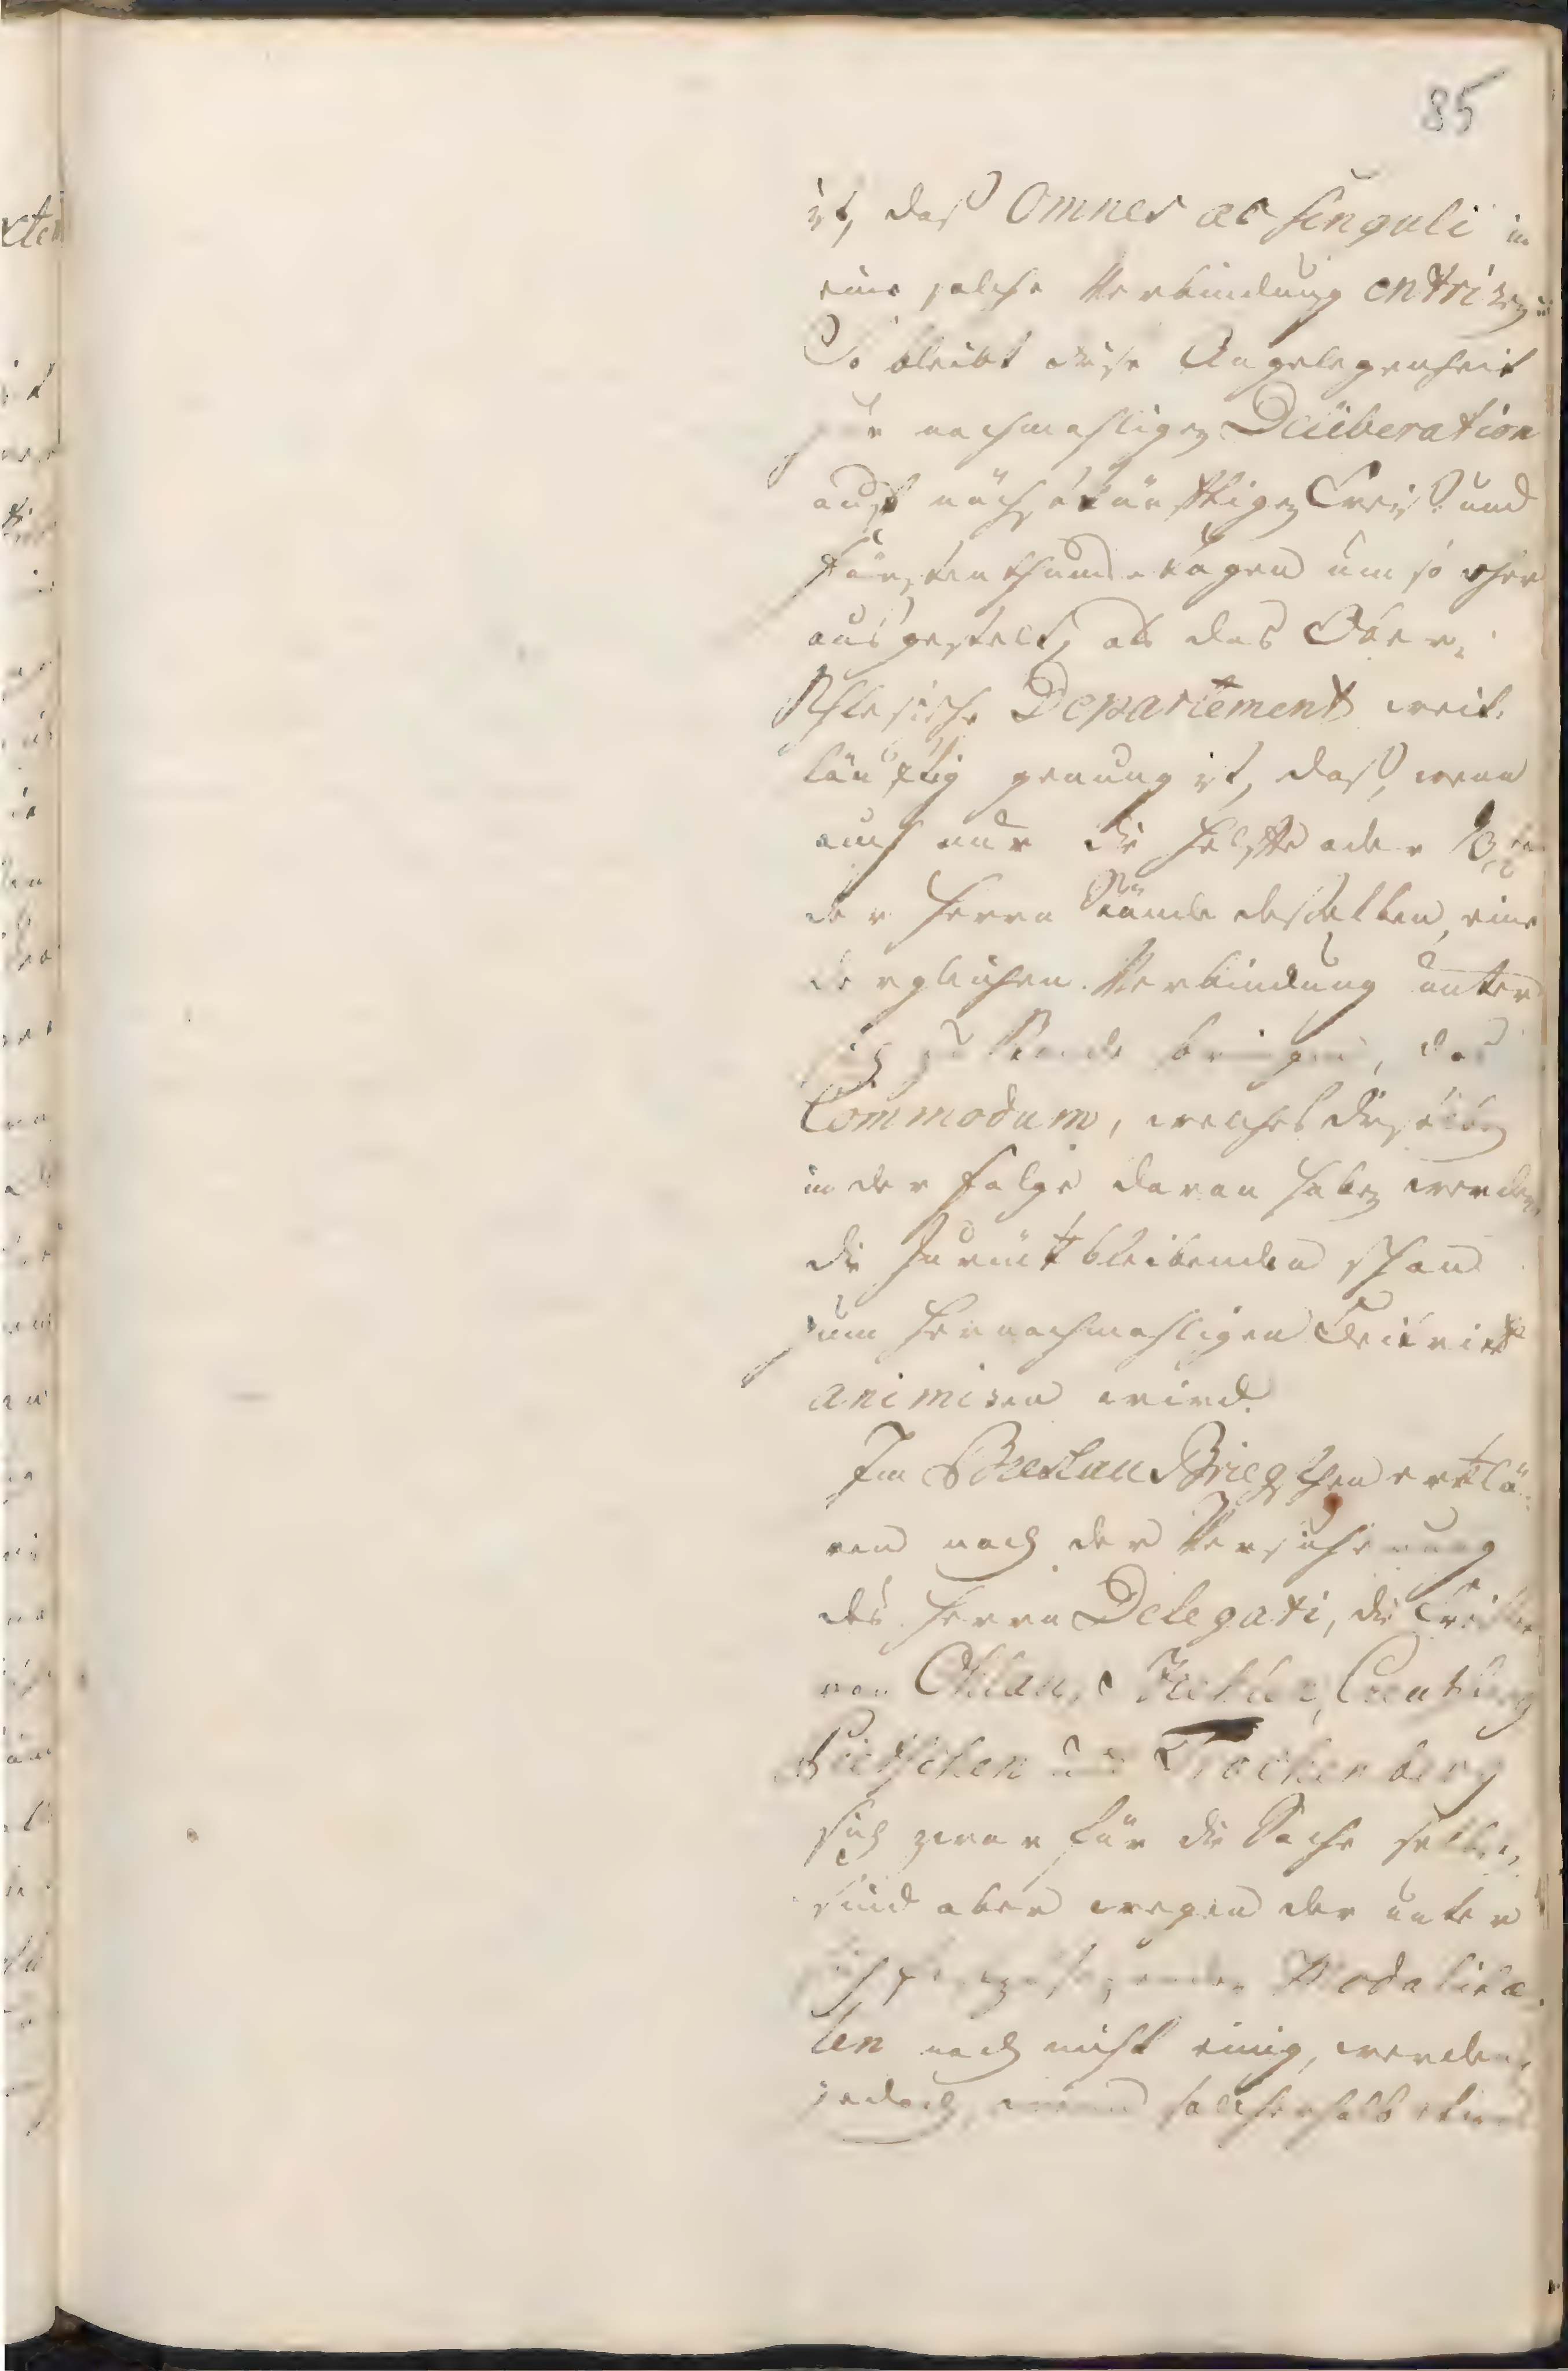 85
ist, daß Omnes ac singuli in
eine solche Verbindung entriren
So bleibt diese Angelegenheit
zur nochmahligen Deliberation
auf nächstkünfftigen Creiß und
Fürstenthums-tägen um so eher
ausgestelt, als das Ober-
Schlesische Departement weit-
läufftig genung ist, daß, wenn
auch nur die Helffte oder
der Herrn Stände desselben, eine
dergleichen Verbindung unter
sich zu Stande bringen, das
Commodum, welches dieselben
in der Folge davon haben werden,
die Zurückbleibenden schon
zum hernachmahligen Beitritt
animiren wird.
Im Breslau Briegschen erklä-
ren nach der Versicherung
des Herrn Delegati, die Creise
von Ohlau, Creutzburg
Pitschen und
sich zwar für die Sache selbst,
sind aber wegen der unter
sich Modalitæ-
ten noch nicht einig, werden
jedoch solcherhalb